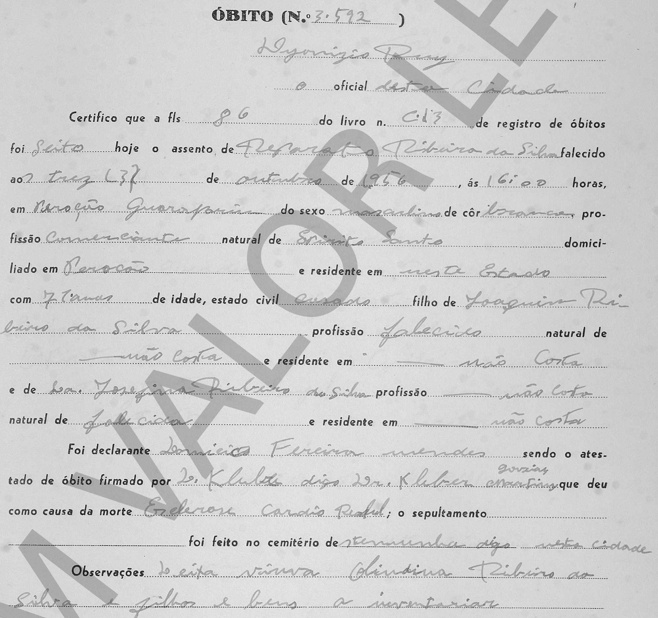 ÓBITO (N.º 3.592 )
Dyonizio Ruy
o oficial desta Cidade
Certifico que a fls 86 do livro n. C-13 de registro de óbitos
foi feito hoje o assento de Ribeiro da Silva falecido
ao? trez (3) de outubro de 1956, ás 16:00 horas,
em Perocão Guarapari do sexo masculino de côr branca, pro-
fissão Comerciante natural de Espirito Santo domici-
liado em Perocão e residente em neste Estado
com 71 anos de idade, estado civil casado filho de Joaquim Ri-
beiro da Silva profissão falecido natural de
não Costa e residente em não Costa
e de Da. Josefina Ribeiro da Silva profissão não Costa
natural de falecida e residente em não costa
Foi declarante Ferreira mendes sendo o ates-
tado de óbito firmado por digo Dr. Kleber que deu
como causa da morte Esclerose Cardio Renal; o sepultamento
foi feito no cemitério de digo nesta cidade
Observações Deixa viuva Olindina Ribeiro da
Silva e filhos e bens a inventariar
M VALOR LE